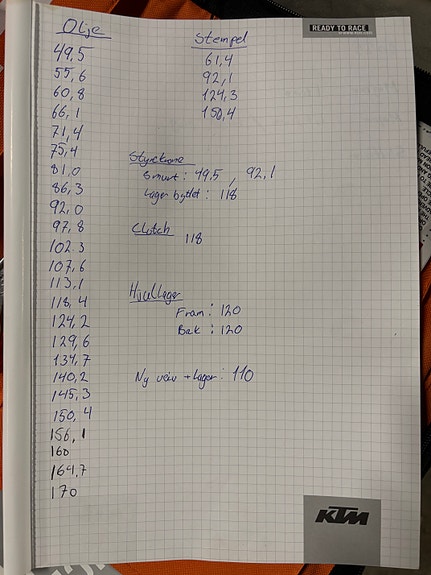 READY TO RACE
Olje
49,5
55,6
60,8
66,1
71,4
75,4
81,0
86,3
92,0
97,8
102,3
107,6
113,1
118,4
124,2
129,6
134,7
140,2
145,3
150,4
156,1
160
164,7
170
Stempel
61,4
92,1
124,3
150,4
Styrekrone
Smurt : 49,5 , 92,1
Lager byttet : 118
Clutch
118
Hjullager
Fram : 120
Bak : 120
Ny veiv + lager : 110
KTM